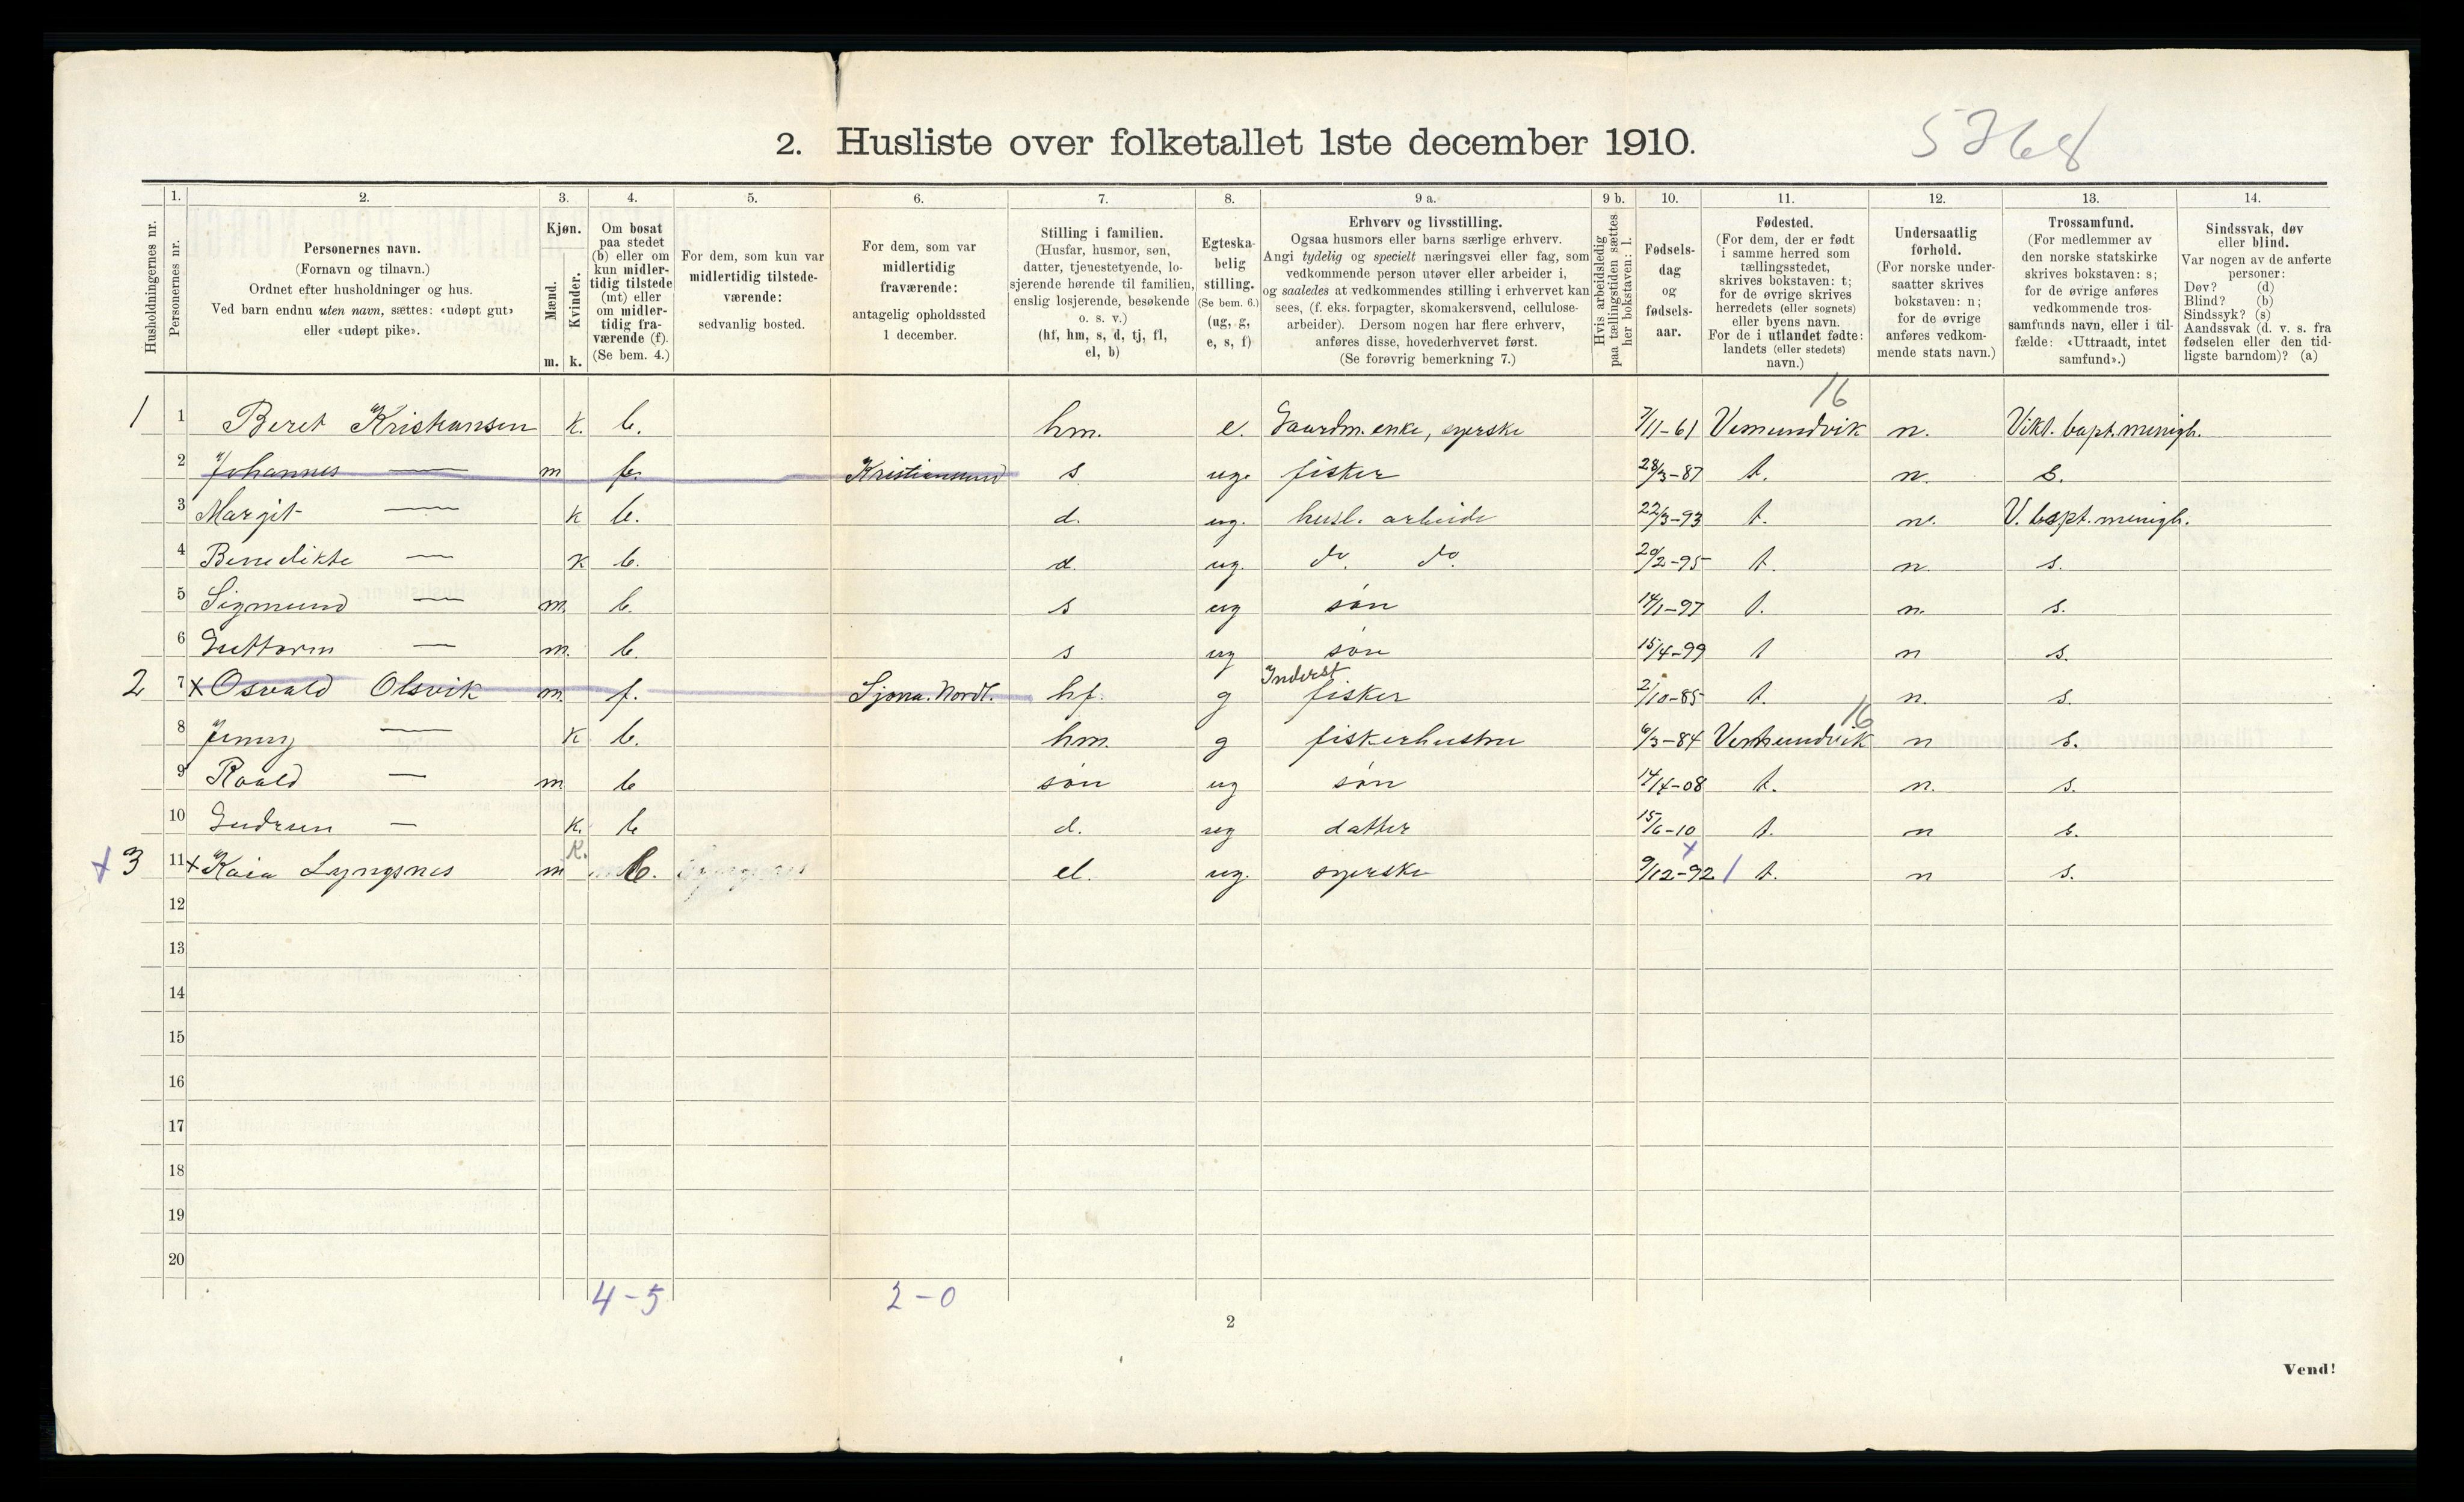 5768
2. Husliste over folketallet 1ste december 1910.
Husholdningernes nr.
1. Personernes nr.
2. Personernes navn. (Fornavn og tilnavn.) Ordnet efter husholdninger og hus. Ved barn endnu uten navn, sættes: «udøpt gut» eller «udøpt pike».
3. Kjøn. Mænd. m. Kvinder. k.
4. Om bosat paa stedet (b) eller om kun midlertidig tilstede (mt) eller om midlertidig fraværende (f). (Se bem. 4.)
5. For dem, som kun var midlertidig tilstedeværende: sedvanlig bosted.
6. For dem, som var midlertidig fraværende: antagelig opholdssted 1 december.
7. Stilling i familien. (Husfar, husmor, søn, datter, tjenestetyende, losjerende hørende til familien, enslig losjerende, besøkende o. s. v.) (hf, hm, s, d, tj, fl, el, b)
8. Egteskabelig stilling. (Se bem. 6.) (ug, g, e, s, f)
9 a. Erhverv og livsstilling. Ogsaa husmors eller barns særlige erhverv. Angi tydelig og specielt næringsvei eller fag, som vedkommende person utøver eller arbeider i, og saaledes at vedkommendes stilling i erhvervet kan sees, (f. eks. forpagter, skomakersvend, cellulosearbeider). Dersom nogen har flere erhverv, anføres disse, hovederhvervet først. (Se forøvrig bemerkning 7.)
9 b. Hvis arbeidsledig paa tællingstiden sættes her bokstaven: l.
10. Fødselsdag og fødselsaar.
11. Fødested. (For dem, der er født i samme herred som tællingsstedet, skrives bokstaven: t; for de øvrige skrives herredets (eller sognets) eller byens navn. For de i utlandet fødte: landets (eller stedets) navn.)
12. Undersaatlig forhold. (For norske undersaatter skrives bokstaven: n; for de øvrige anføres vedkommende stats navn.)
13. Trossamfund. (For medlemmer av den norske statskirke skrives bokstaven: s; for de øvrige anføres vedkommende trossamfunds navn, eller i tilfælde: «Uttraadt, intet samfund».)
14. Sindssvak, døv eller blind. Var nogen av de anførte personer: Døv? (d) Blind? (b) Sindssyk? (s) Aandssvak (d. v. s. fra fødselen eller den tidligste barndom)? (a)
16
1 1 Beret Kristiansen k. b. hm. e. Gaardm. enke, syerske 7/11-61 Vemundvik n. Vikt. bapt. menigh.
2 Johannes — m f. Kristiansund s ug. fisker 28/3-87 t. n. s.
3 Margit — k b. d. ug. husl. arbeide 22/3-93 t. n. V. bapt. menigh.
4 Benedikte — k b. d. ug. do. do. 20/2-95 t. n. s.
5 Sigmund — m. b. s ug søn 14/1-97 t. n. s.
6 Guttorm — m. b. s ug søn 15/4-99 t n s.
2 7 x Osvald Olsvik m. f. Sjona. Nordl. hf. g Inderst fisker 2/10-85 t. n. s.
16
8 Jenny — k b. hm. g fiskerhustru 6/3-84 Vemundvik n s.
9 Roald — m b søn ug søn 14/4-08 t. n. s.
10 Gudrun — k. b d. ug datter 15/6-10 t. n s.
x 3 11 x Kaia Lyngsnes m k. b. el. ug. syerske 9/12-92 x / t. n s.
12
13
14
15
16
17
18
19
20
4-5 2-0
2
Vend!